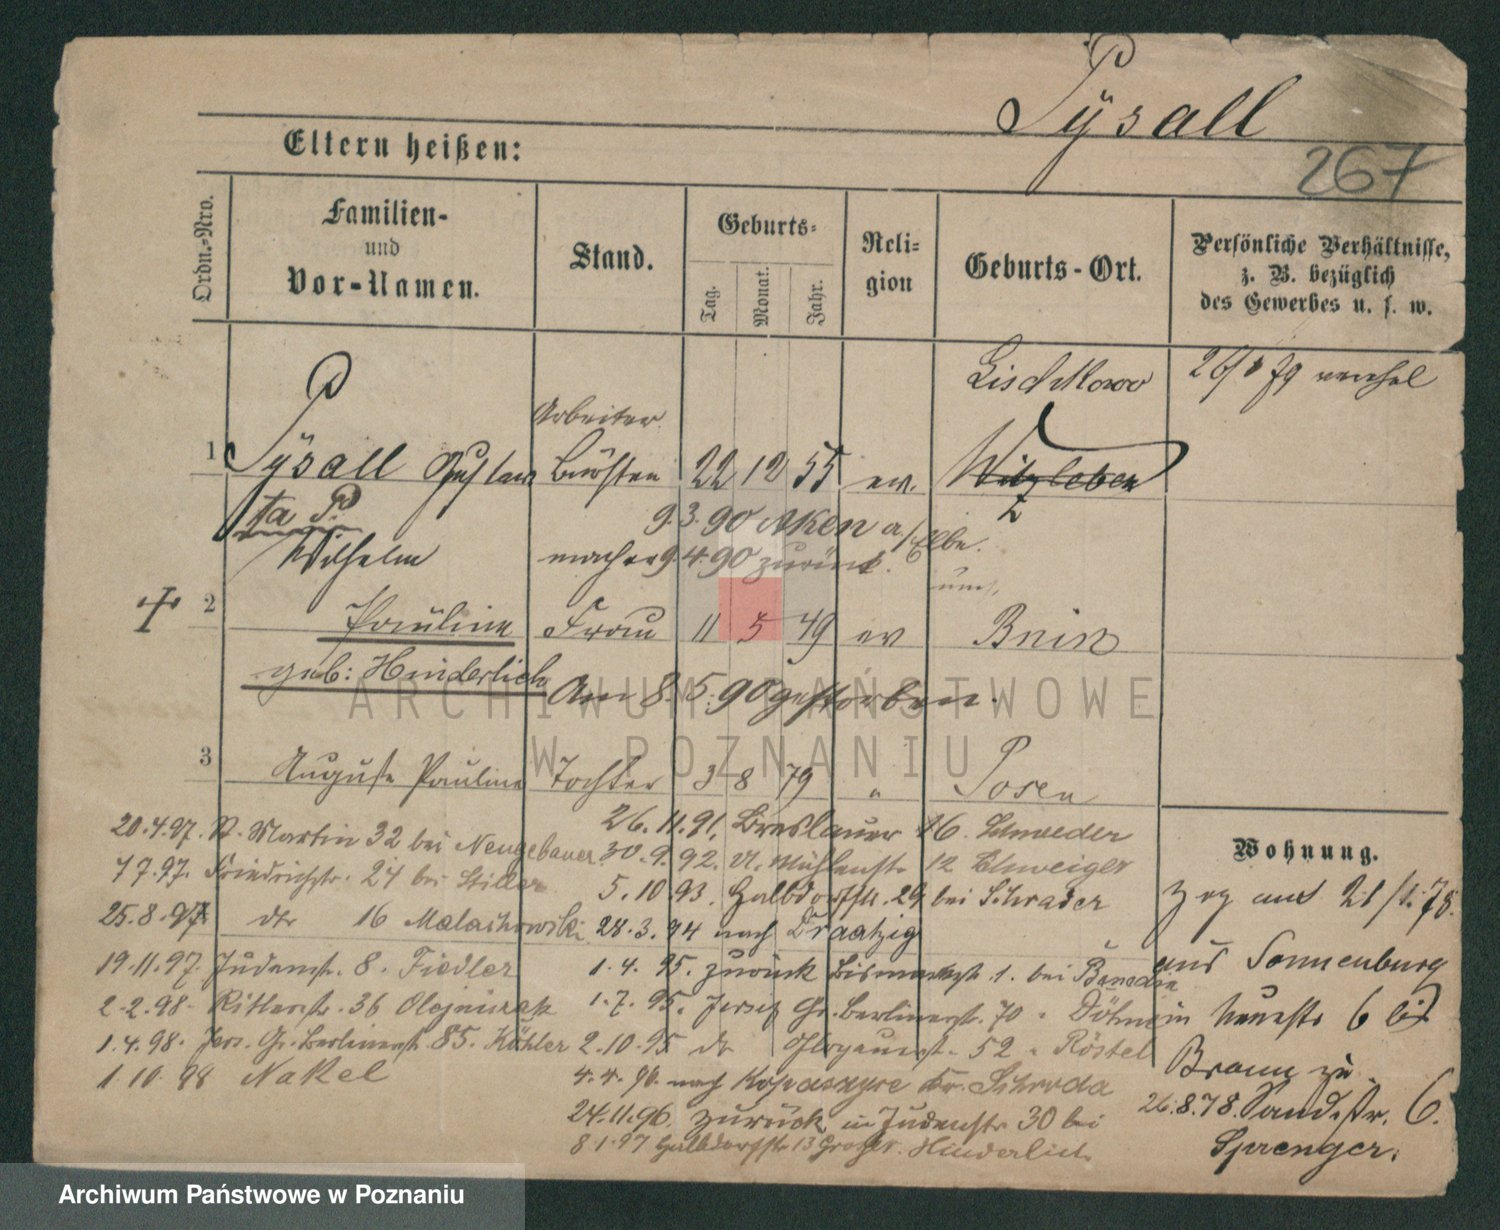 Pÿsall
267
Eltern heißen:
Ordn.-Nro.
Familien- und Vor-Namen.
Stand.
Geburts-
Tag.
Monat.
Jahr.
Reli-gion
Geburts-Ort.
Persönliche Verhältnisse,
z. B. bezüglich
des Gewerbes u. s. w.
Lischkowo
P
Arbeiter
1 Pÿsall Gustav Bürsten 22 12 55 ev. Witzleben
ta P.
9.3.90 Aken a/Elbe.
Wilhelm macher 9.4.90 zurück.
2 Pauline Frau 11 5 49 ev Bnin
geb: Hinderlich Am 8.5.90 gestorben.
3 Auguste Pauline Tochter 3 8 79 " Posen
Wohnung.
zog aus 21/1.78.
aus Sonnenburg
in Neuestr 6 bei
Braun zu
26.8.78. Sandstr. 6.
Sprenger.
26.11.91. Breslauer 16. Schroeder
30.9.92. Mühlenstr. 12 Schweiger
5.10.93. Halbdorfstr. 29 bei Schrader
28.3.94 nach Draatzig
1.4.95. zurück Bismarckstr 1. bei
1.7.95. Jersitz Gr. Berlinerstr. 70
2.10.95 do 52 " Röstel
4.4.96. nach Kr. Schroda
24.11.96. zurück in Judenstr 30 bei
8.1.97 Halbdorfstr 13 Hinderlich
20.4.97. St. Martin 32 bei Neugebauer
7.7.97. Friedrichstr. 24 bei Stiller
25.8.97 dto 16 Malachowski
19.11.97. Judenstr. 8. Fiedler
2.2.98. Ritterstr. 36 Olejniczak
1.4.98. Jers. Gr. Berlinerstr. 85. Köhler
1.10.98 Nakel
ARCHIWUM PAŃSTWOWE
W POZNANIU
Archiwum Państwowe w Poznaniu